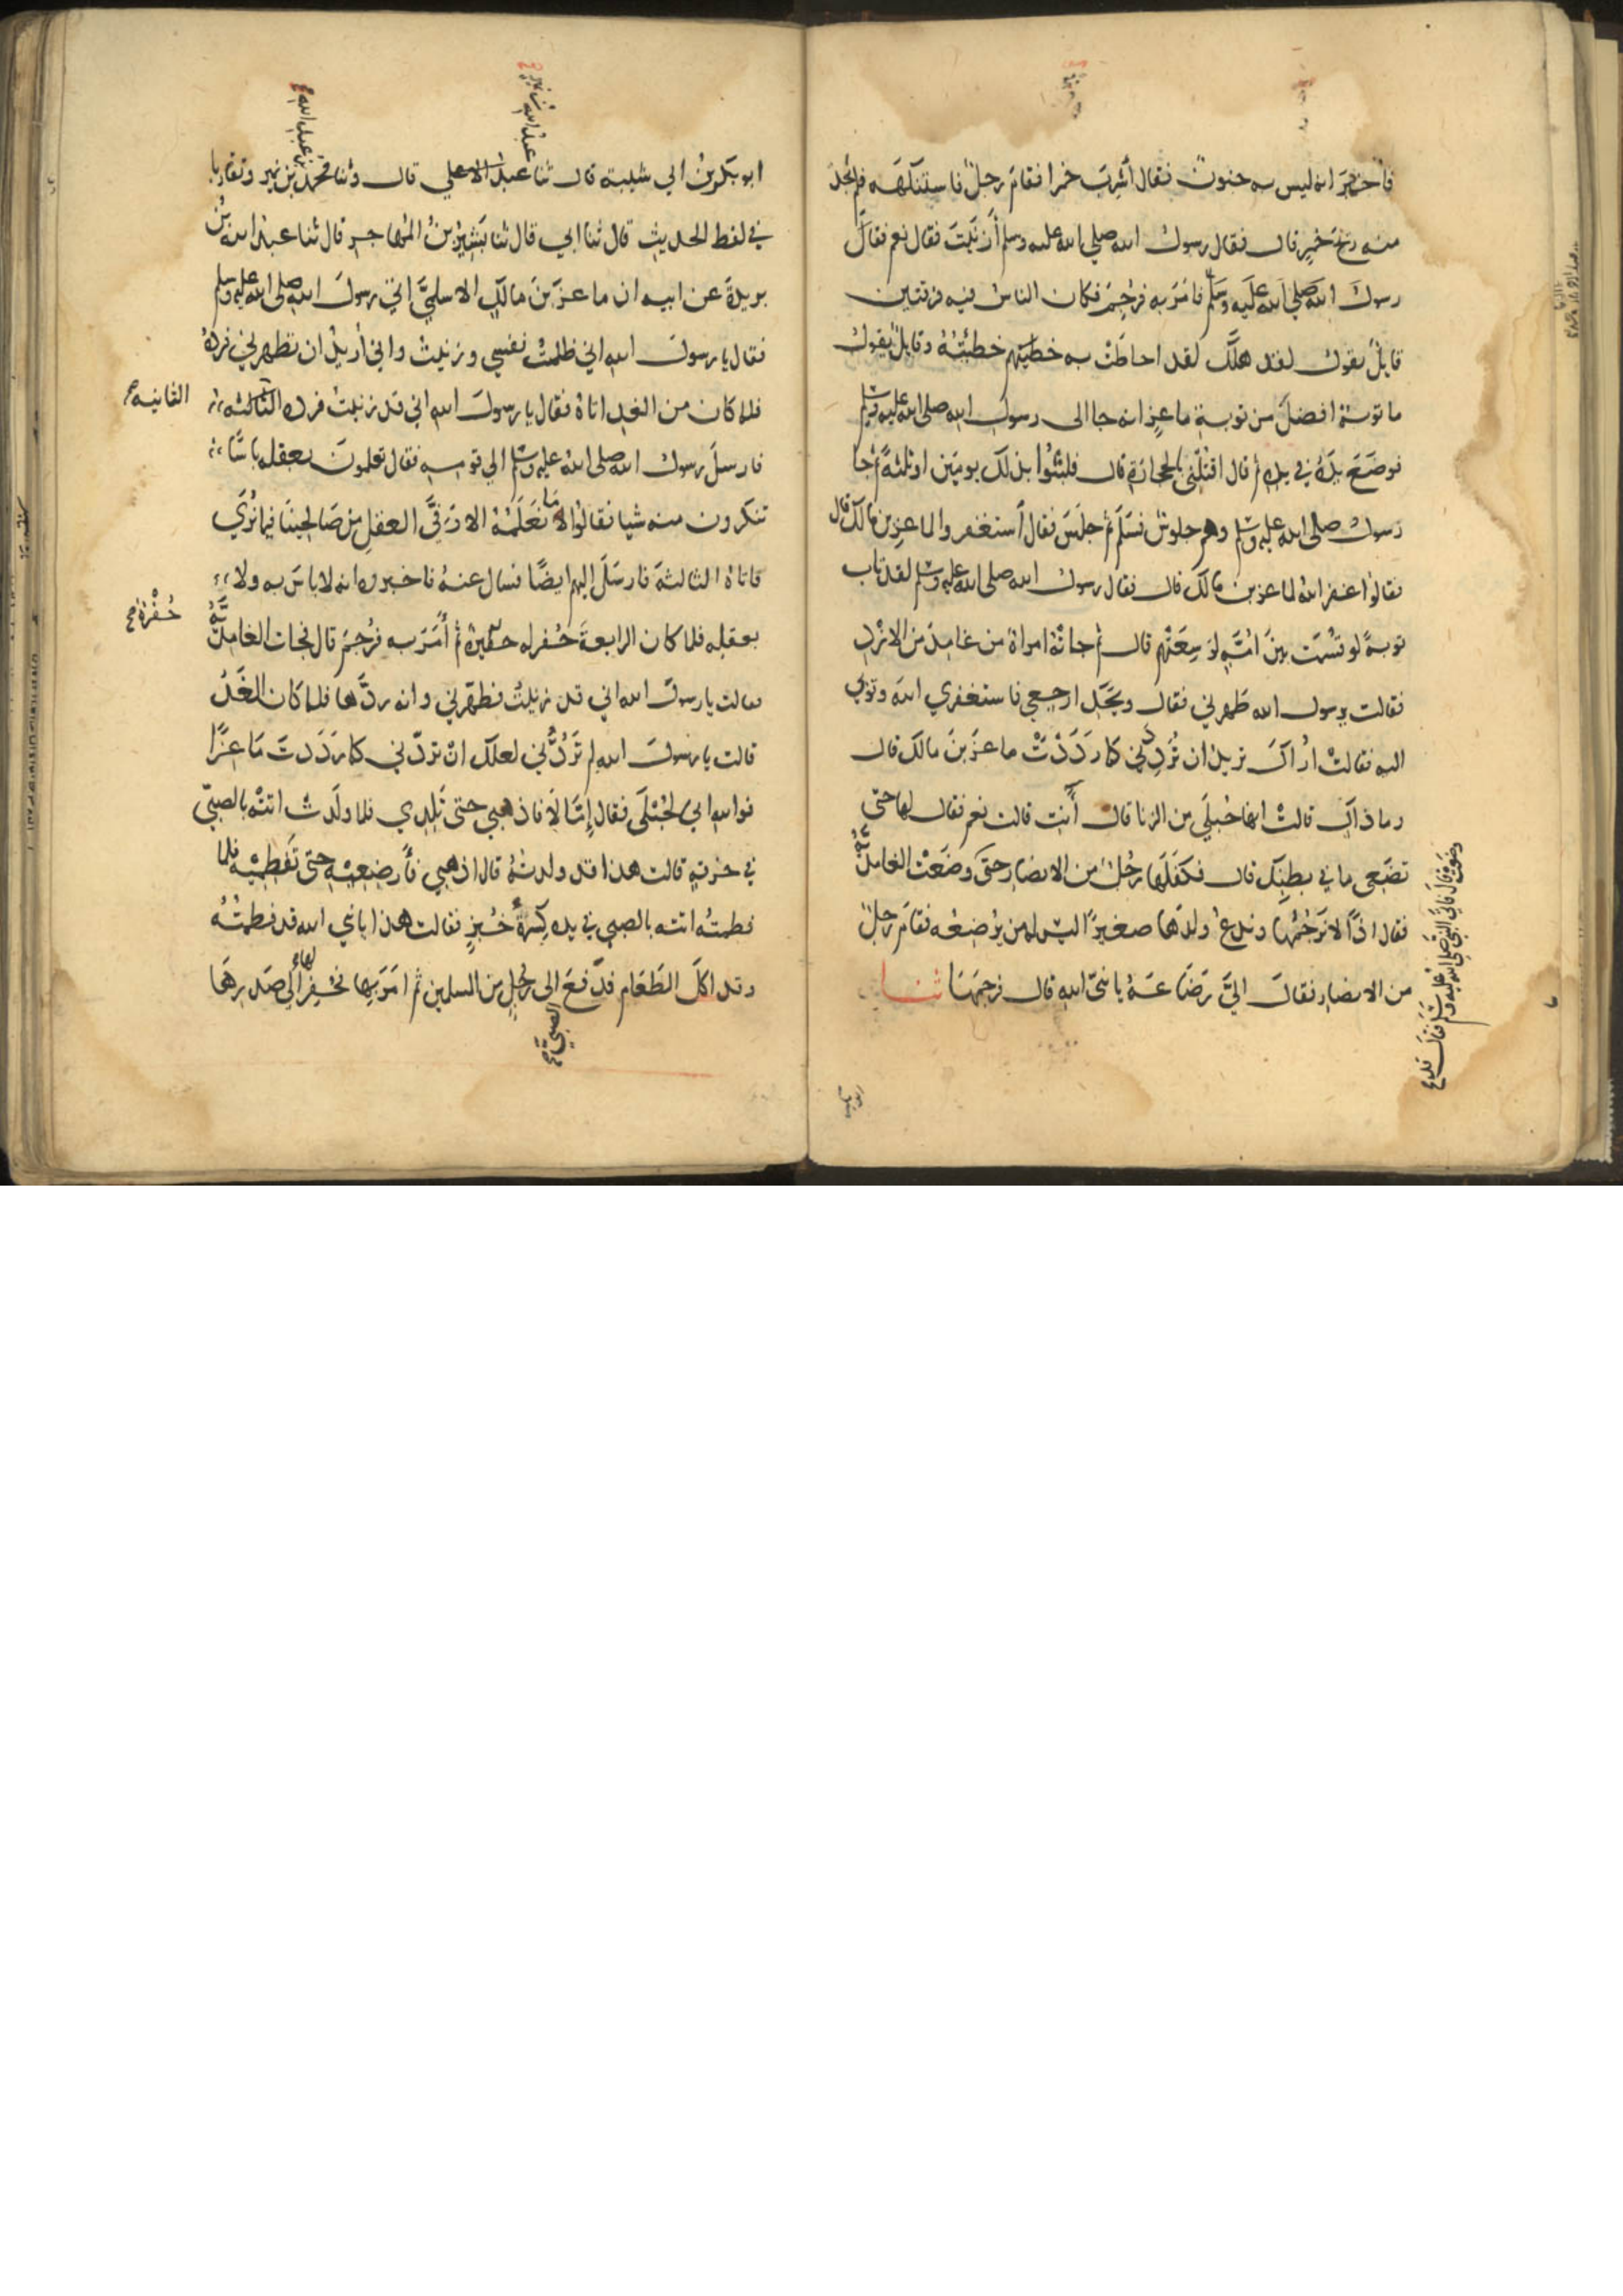 فأُخبِرَ انه ليس به جنون فقال أَشَرِبَ خمرا فقام رجلٌ فاستنكهه فلم يجد
منه ريح خمرٍ قال فقال رسول الله صلى الله عليه وسلم أزنيت فقال نعم فقال
رسول الله صلى الله عليه وسلم فامر به فرُجِمَ فكان الناس فيه فرقتين
قايل يقول لقد هلك لقد احاطت به خطيته وقايل يقول
ما توبة افضل من توبة ماعزٍ انه جا الى رسول الله صلى الله عليه وسلم
فوضع يدَهُ في يده ثم قال اقتلني بالحجارة قال فلبثوا بذلك يومين او ثلثة ثم جا
رسول صلى الله عليه وسلم وهم جلوس فسلم ثم جلس فقال أستغفروا لماعزِ بن مالك قال
فقالوا غفر الله لماعز بن مالك قال فقال رسول الله صلى الله عليه وسلم لقد تاب
توبةً لو قسمت بين امّةٍ لوَسِعَتْهم قال ثم جاتهُ امراة من غامدَ من الازد
فقالت يرسول الله طهرني فقال ويحك ارجعي فاستغفري الله وتوبي
اليه فقالت اراك تريد ان تُرَدِّدني كما رَدَدْتَ ماعزَ بنَ مالك قال
وما ذاك قالت انها حُبلَي من الزنا قال أَنت قالت نعم فقال لها حتى
تضعي ما في بطنك قال فكفلها رجلٌ من الانصار حتى وضعت الغامديَّةُ
فقال اذًا لا نرجُمُها وندعُ ولدَها صغيرًا ليس له من يُرضِعُه فقام رجلٌ
من الانصار فقال اليَّ رَضَاعَهُ يا نبيَّ الله قال فرجمها ثنا
وضعت قال فاتى النبيَّ صلى الله عليه وسلم فقال قد
ابو بكر بنُ ابي شيبة قال ثنا عبد الاعلي قال وثنا محمدُ بن نمير وتقاربا
عبد الله بن نمير
بن عبد الله
في لفظ الحديثِ قال ثنا ابي قال ثنا بَشيرُ بنُ المُهاجرِ قال ثنا عبدُ الله بنُ
بريدةَ عن ابيه ان ماعزَ بنَ مالكٍ الاسلميَّ اتى رسولَ الله صلى الله عليه وسلم
فقال يا رسولَ الله اني ظلمتُ نفسي وزنيت واني أريدُ ان تطهرني فردهُ
فلما كان من الغد اتاهُ فقال يا رسولَ الله اني قد زنيت فرده الثالثه
الثانيه
فارسل رسول الله صلى الله عليه وسلم الي قومه فقال تعلمونَ بعقله باسًا
تنكرون منه شيا فقالوا ما نَعلَمُهُ الا وَفِيَّ العقلِ من صَالحينا فيما نُرَي
فاتاهُ الثالثةَ فارسَلَ اليهم ايضًا فسال عنهُ فاخبروه انه لا باسَ به ولا
بعقله فلما كان الرابعةَ حُفر له حفيرة ثم أَمَرَ به فرُجمَ قال فجات الغامديَّةُ
حُفْرَة
فقالت يا رسولَ الله اني قد زنيتُ فطهّرني وانه ردَّها فلما كان الغَدُ
قالت يا رسولَ الله لم تَرُدُّني لعلك ان تردّني كما رَدَدتَ مَاعِزًا
فوالله اني لحُبْلَى فقال إمَّا لَا فاذهبي حتى تَلِدِي فلما ولَدت اتتْه بالصبيّ
في خرقةٍ قالت هذا قد ولدتُهُ قال اذهبي فأَرضِعِيه حتى تَفطِمِيْه فلما
فطمتُه اتته بالصبي في يده كِسْرَةُ خُبزٍ فقالت هذا يا نبي الله قد فطمتُهُ
وقد اكلَ الطَعَام فدَفعَ الى رجلٍ من المسلمين ثم امَرَ بها فحُفِرَ لها الي صَدرِهَا
الصبيَّ